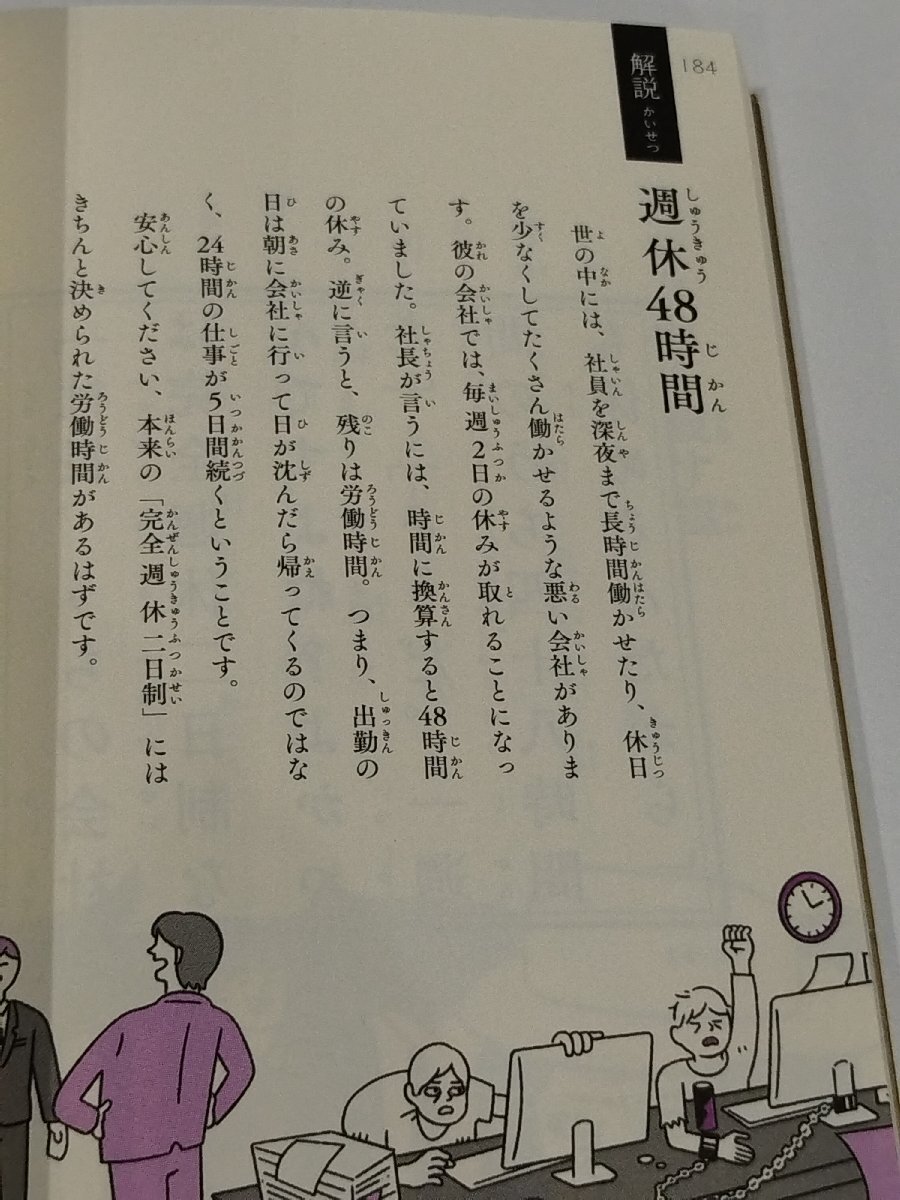 184
解説
かいせつ
週休48時間
しゅうきゅう じかん
世の中には、社員を深夜まで長時間働かせたり、休日
を少なくしてたくさん働かせるような悪い会社がありま
す。彼の会社では、毎週2日の休みが取れることになっ
ていました。社長が言うには、時間に換算すると48時間
の休み。逆に言うと、残りは労働時間。つまり、出勤の
日は朝に会社に行って日が沈んだら帰ってくるのではな
く、24時間の仕事が5日間続くということです。
安心してください、本来の「完全週休二日制」には
きちんと決められた労働時間があるはずです。